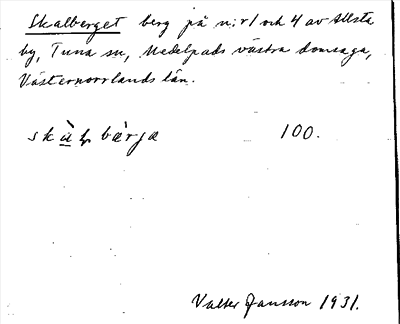 Skalberget berg på n:r 1 och 4 av Allsta
by, Tuna sn, Medelpads västra domsaga,
Västernorrlands län.
100.
Valter Jansson 1931.